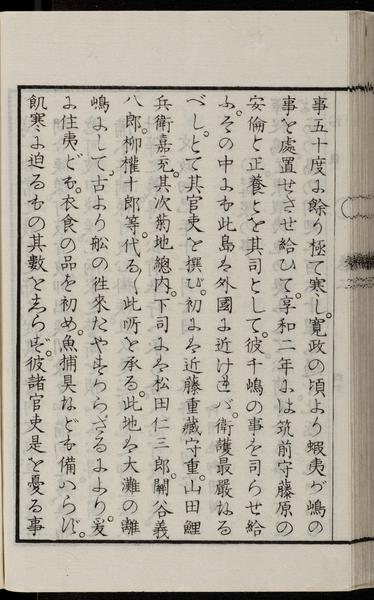 事五十度に餘り極て寒し。寛政の頃より蝦夷が嶋の
事を處置せさせ給ひて。享和二年には筑前守藤原の
安倫と正養とを其司として。彼千嶋の事を司らせ給
ふ。その中にも此島は外國に近ければ。衛護最嚴なる
べし。とて其官吏を撰び。初には近藤重藏守重。山田鯉
兵衛嘉充。其次菊地總内。下司には松田仁三郎。關谷義
八郎。柳權十郎等。代る〱此所を承る。此地は大灘の離
嶋にして。古より舩の徃來たやすからざるにより。爰
に住夷ども。衣食の品を初め。魚捕具なども備はらず。
飢寒に迫るもの其數をしらず。彼諸官吏是を憂る事